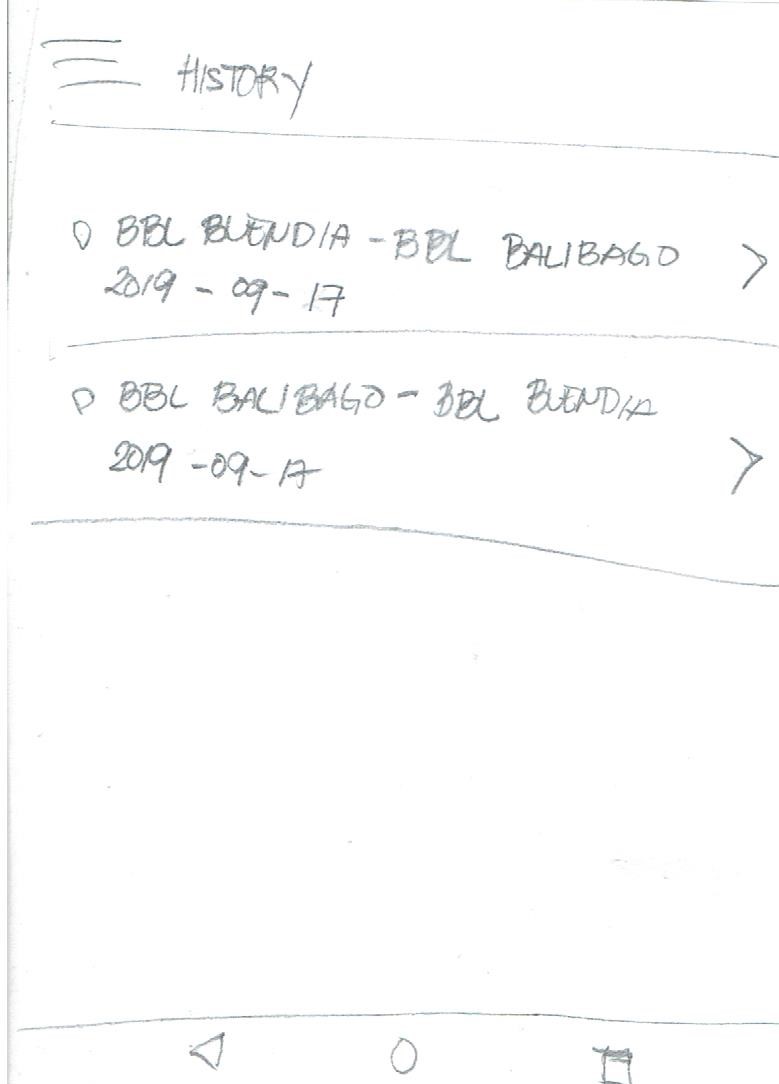 HISTORY
BBL BUENDIA - BBL BALIBAGO
2019 - 09 - 17
BBL BALIBAGO - BBL BUENDIA
2019 - 09 - 17